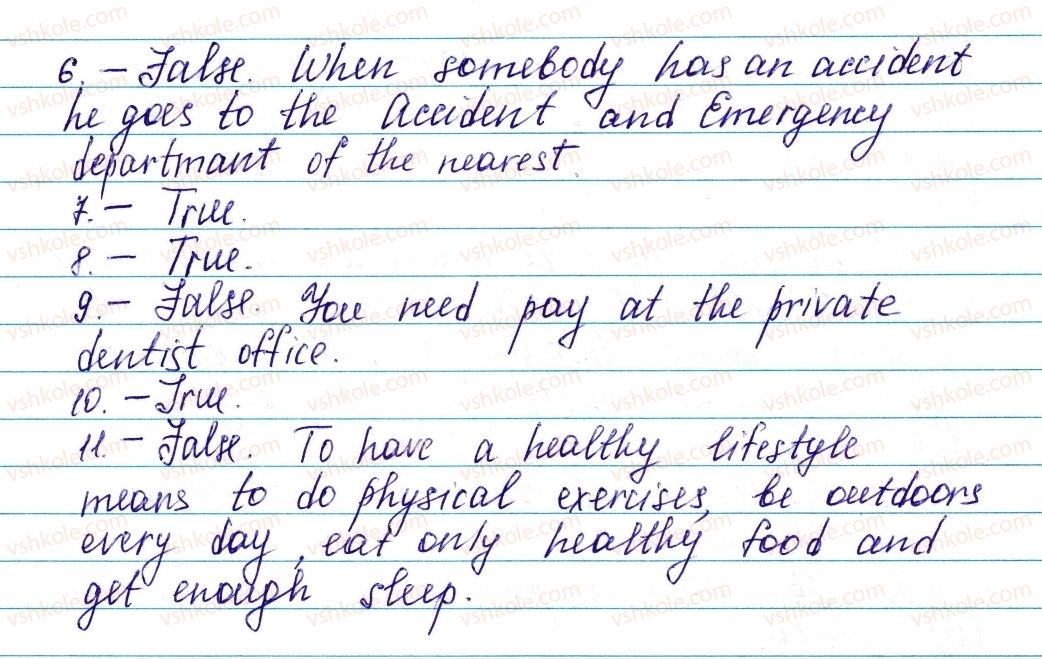 6. – False. When somebody has an accident
he goes to the Accident and Emergency
departmant of the nearest.
7. – True.
8. – True.
9. – False. You need pay at the private
dentist office.
10. – True.
11. – False. To have a healthy lifestyle
means to do physical exercises, be outdoors
every day, eat only healthy food and
get enough sleep.
vshkole.com